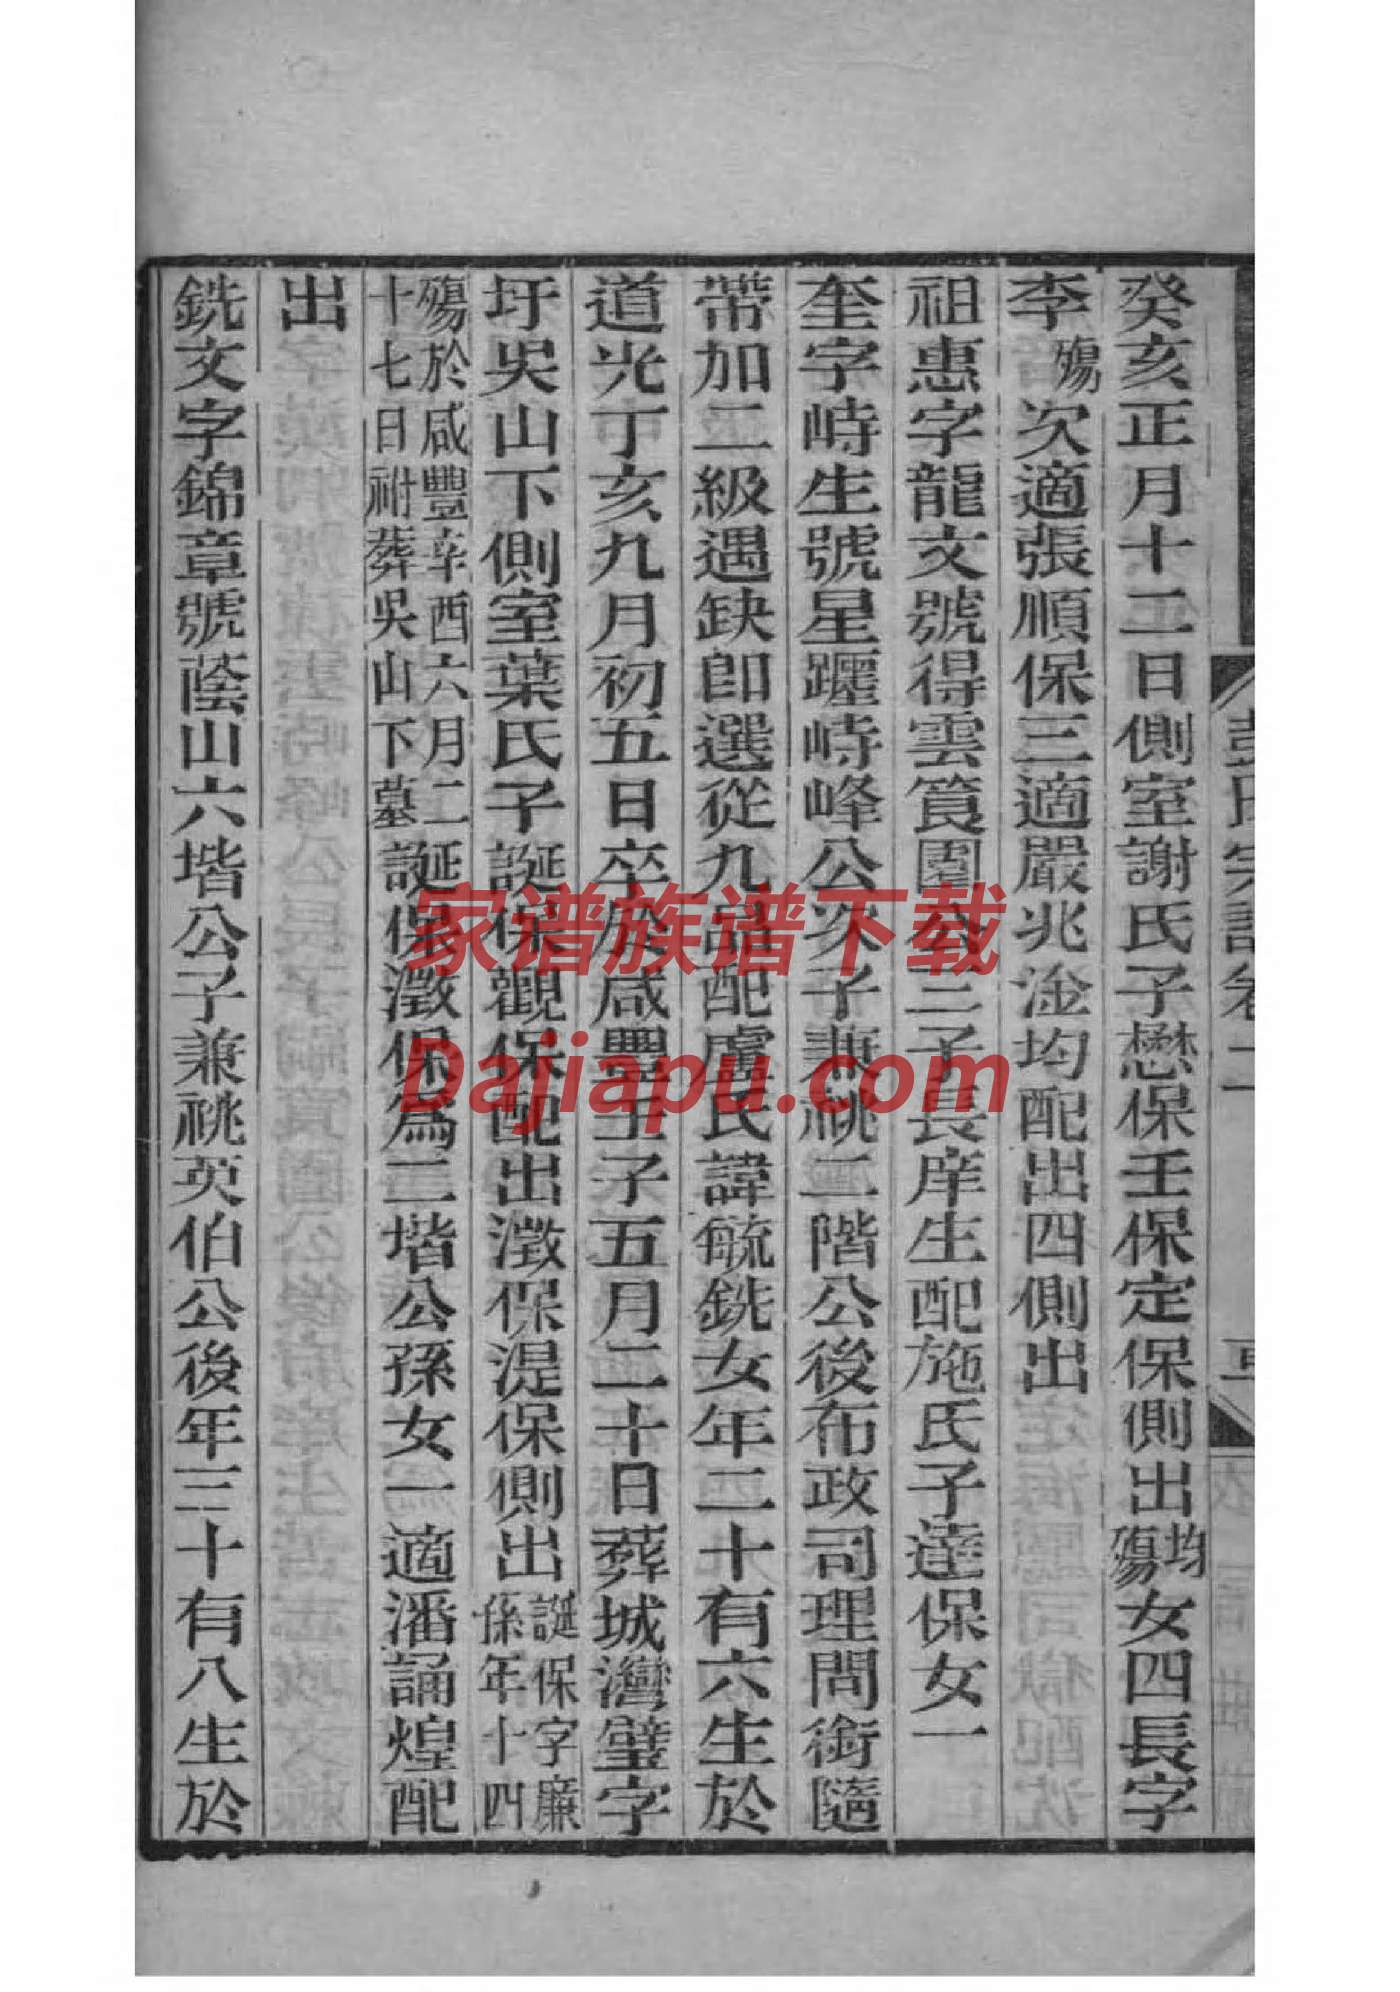 癸亥正月十二日側室謝氏子懋保壬保定保側出均殤女四長字
李殤次適張順保三適嚴兆淦均配出四側出
祖惠字龍文號得雲筤園公三子長庠生配施氏子達保女一
奎字峙生號星躔峙峰公次子兼祧二階公後布政司理問銜隨
帶加二級遇缺即選從九品配盧氏諱毓銑女年二十有六生於
道光丁亥九月初五日卒於咸豐壬子五月二十日葬城灣璧字
圩吳山下側室葉氏子誕保觀保配出澂保湜保側出誕保字廉孫年十四
殤於咸豐辛酉六月二十七日祔葬吳山下墓誕保澂保為二堦公孫女一適潘誦煌配
出
銑文字錦章號蔭山六堦公子兼祧英伯公後年三十有八生於
彭氏宗譜卷二
家谱族谱下载
Dajiapu.com